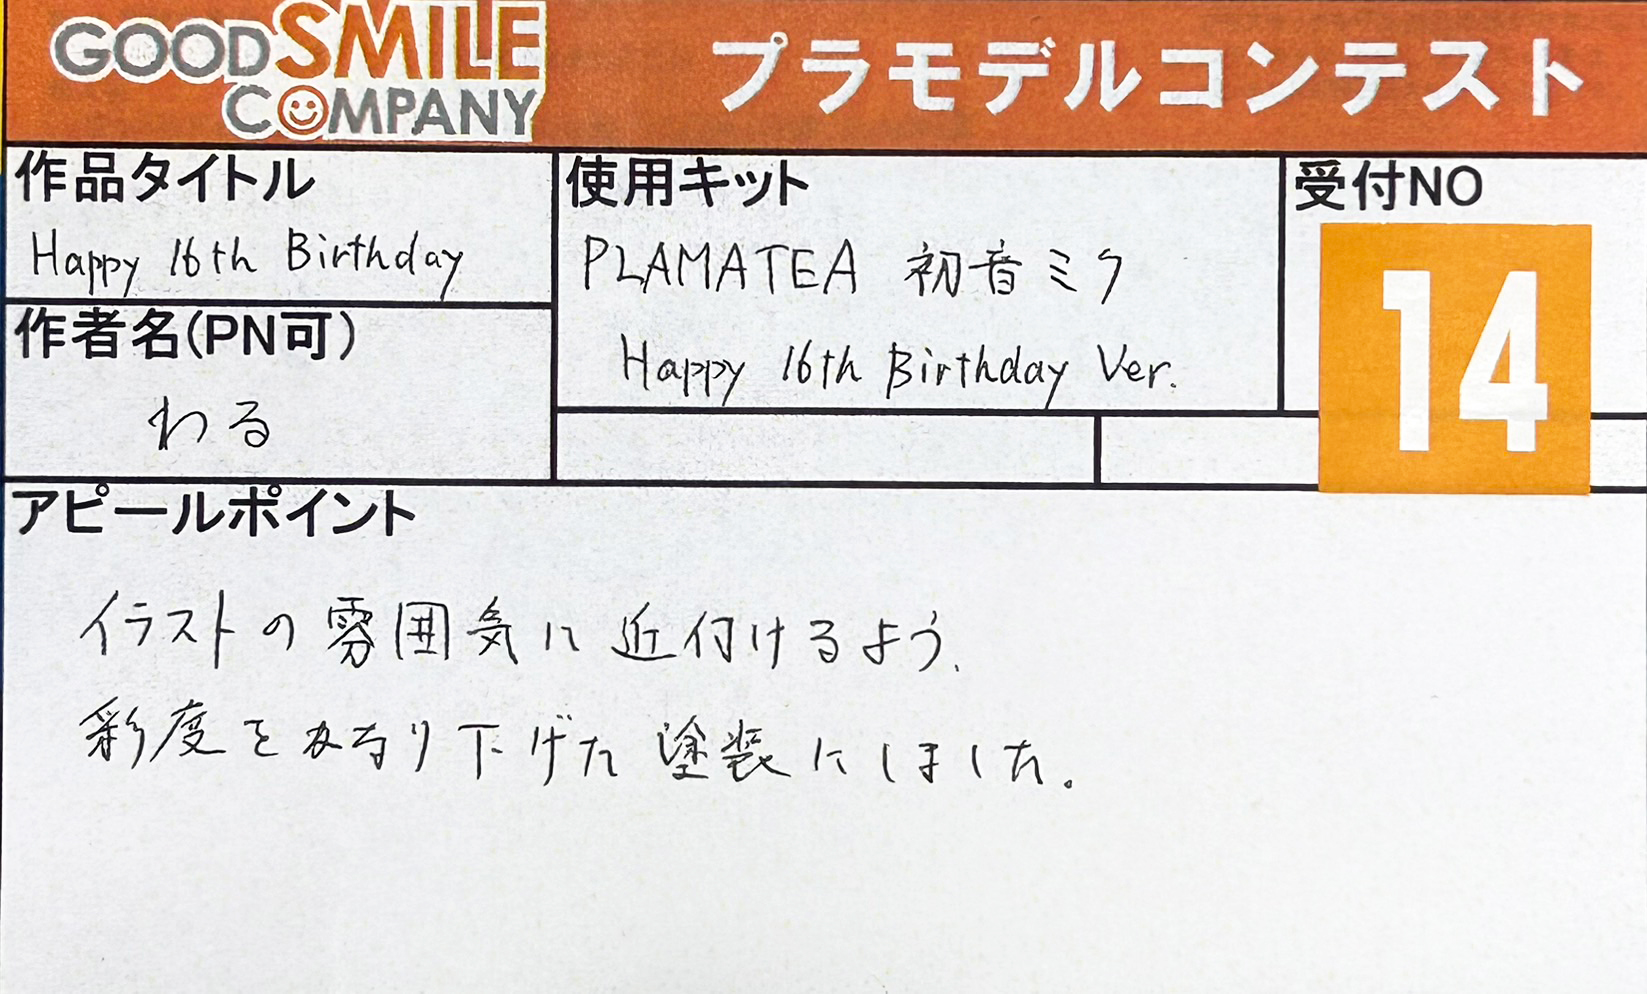 GOOD SMILE
COMPANY
プラモデルコンテスト
作品タイトル
Happy 16th Birthday
作者名(PN可)
わる
使用キット
PLAMATEA 初音ミク
Happy 16th Birthday Ver.
受付NO
14
アピールポイント
イラストの雰囲気に近付けるよう、
彩度をかなり下げた塗装にしました。